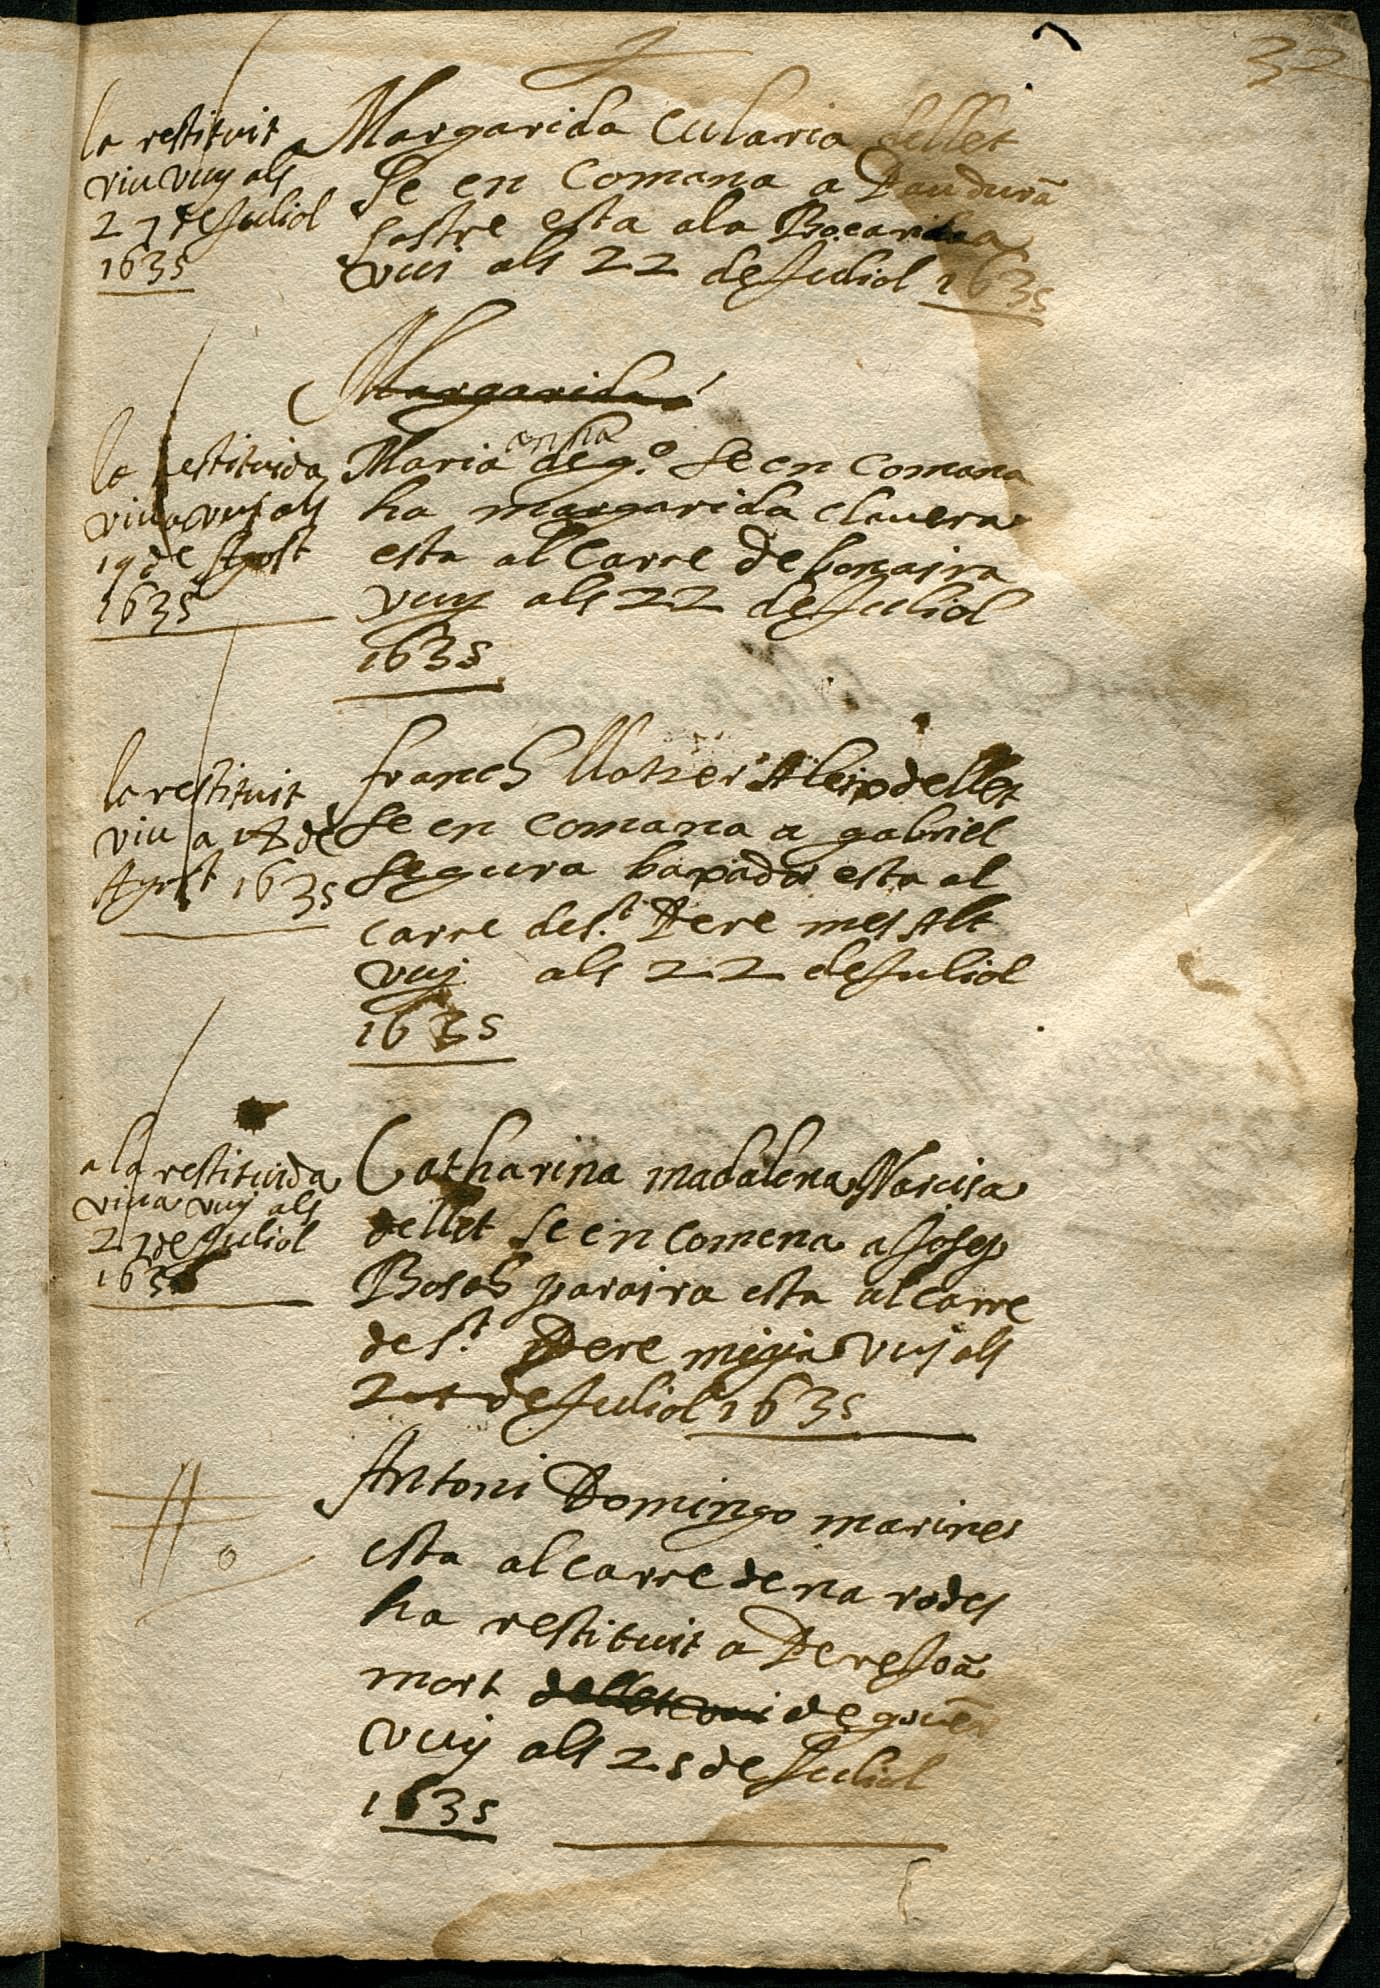 32
la restituit
viu vuy als
27 de Juliol
1635
Margarida Eularia dellet
Se en Comana a Pau durã
sastre esta ala Bocaria
vui als 22 de Juliol 1635
Margarida
la restituida
viua vuy als
19 de Agost
1635
Maria de g.º Se en Comana
ha margarida clauera
esta al Carre de bonaira
vuy als 22 de Juliol
1635
la restituit
viu a 18 de
Agost 1635
franch llatzer Aleix dellet
Se en Comana a gabriel
Segura baxador esta al
carre de s.t Pere mes Alt
vuy als 22 de Juliol
1635
a la restituida
viua vuy als
27 de Juliol
1635
Catharina madalena Narcisa
dellet Se en Comena a Josep
Bosch paraira esta al carre
de S.t Pere migia vuj als
de Juliol 1635
Antoni Domingo mariner
esta al carre de na rodes
ha restituit a Pere Joã
mort dellet vui de gouẽn
vuy als 25 de Juliol
1635